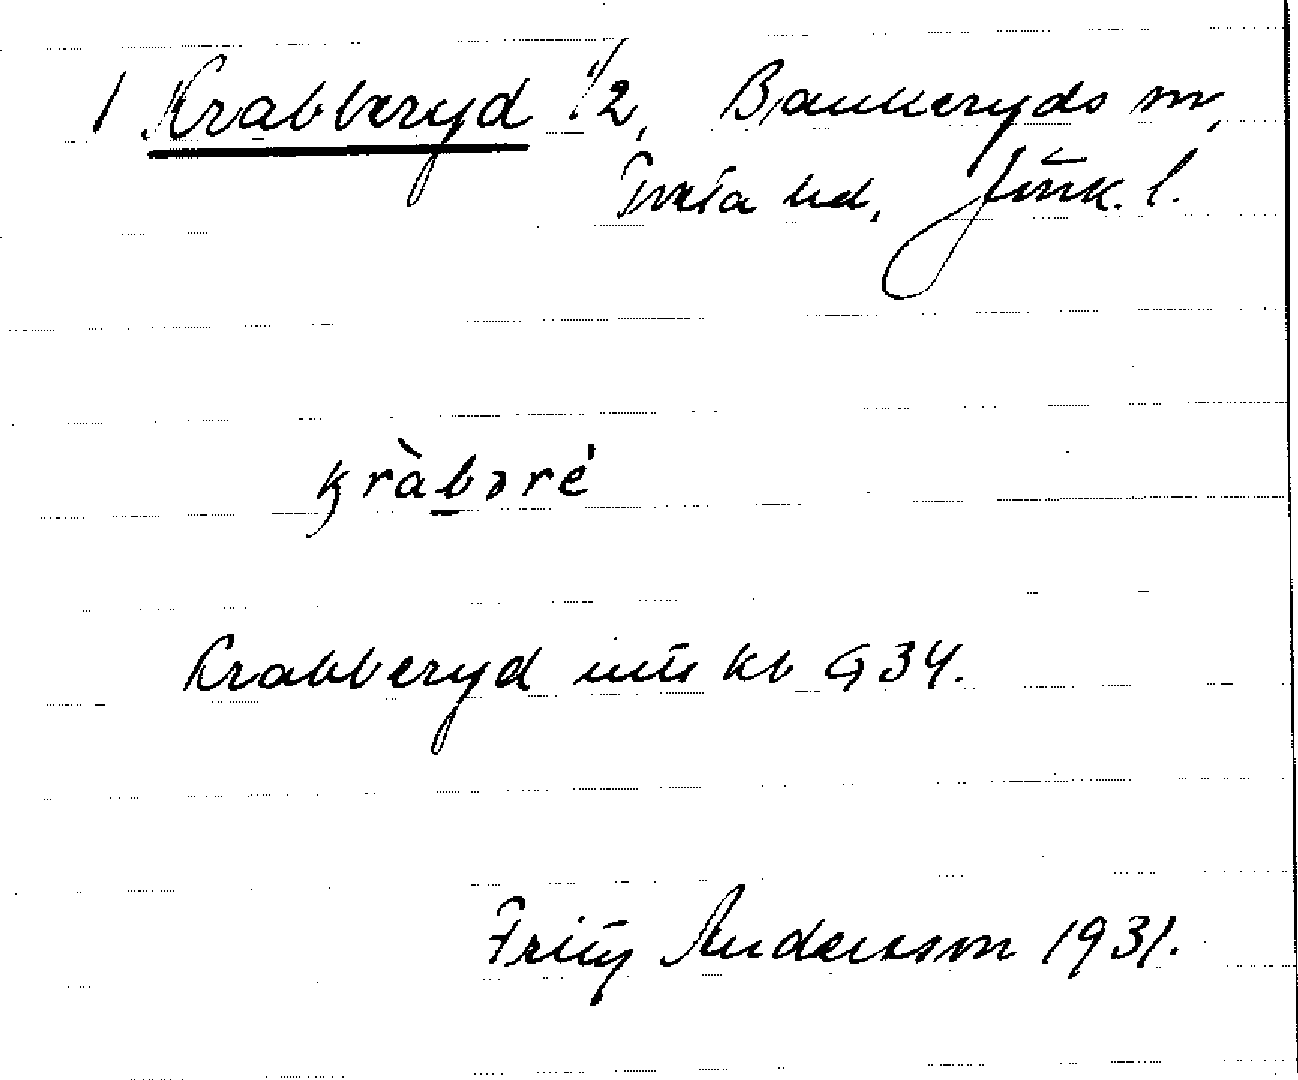 1 Krabberyd 1/2, Bankeryds sn,
Tveta hd, Jönk. l.
kràbɔré
Krabberyd kb G34.
Fritz Andersson 1931.